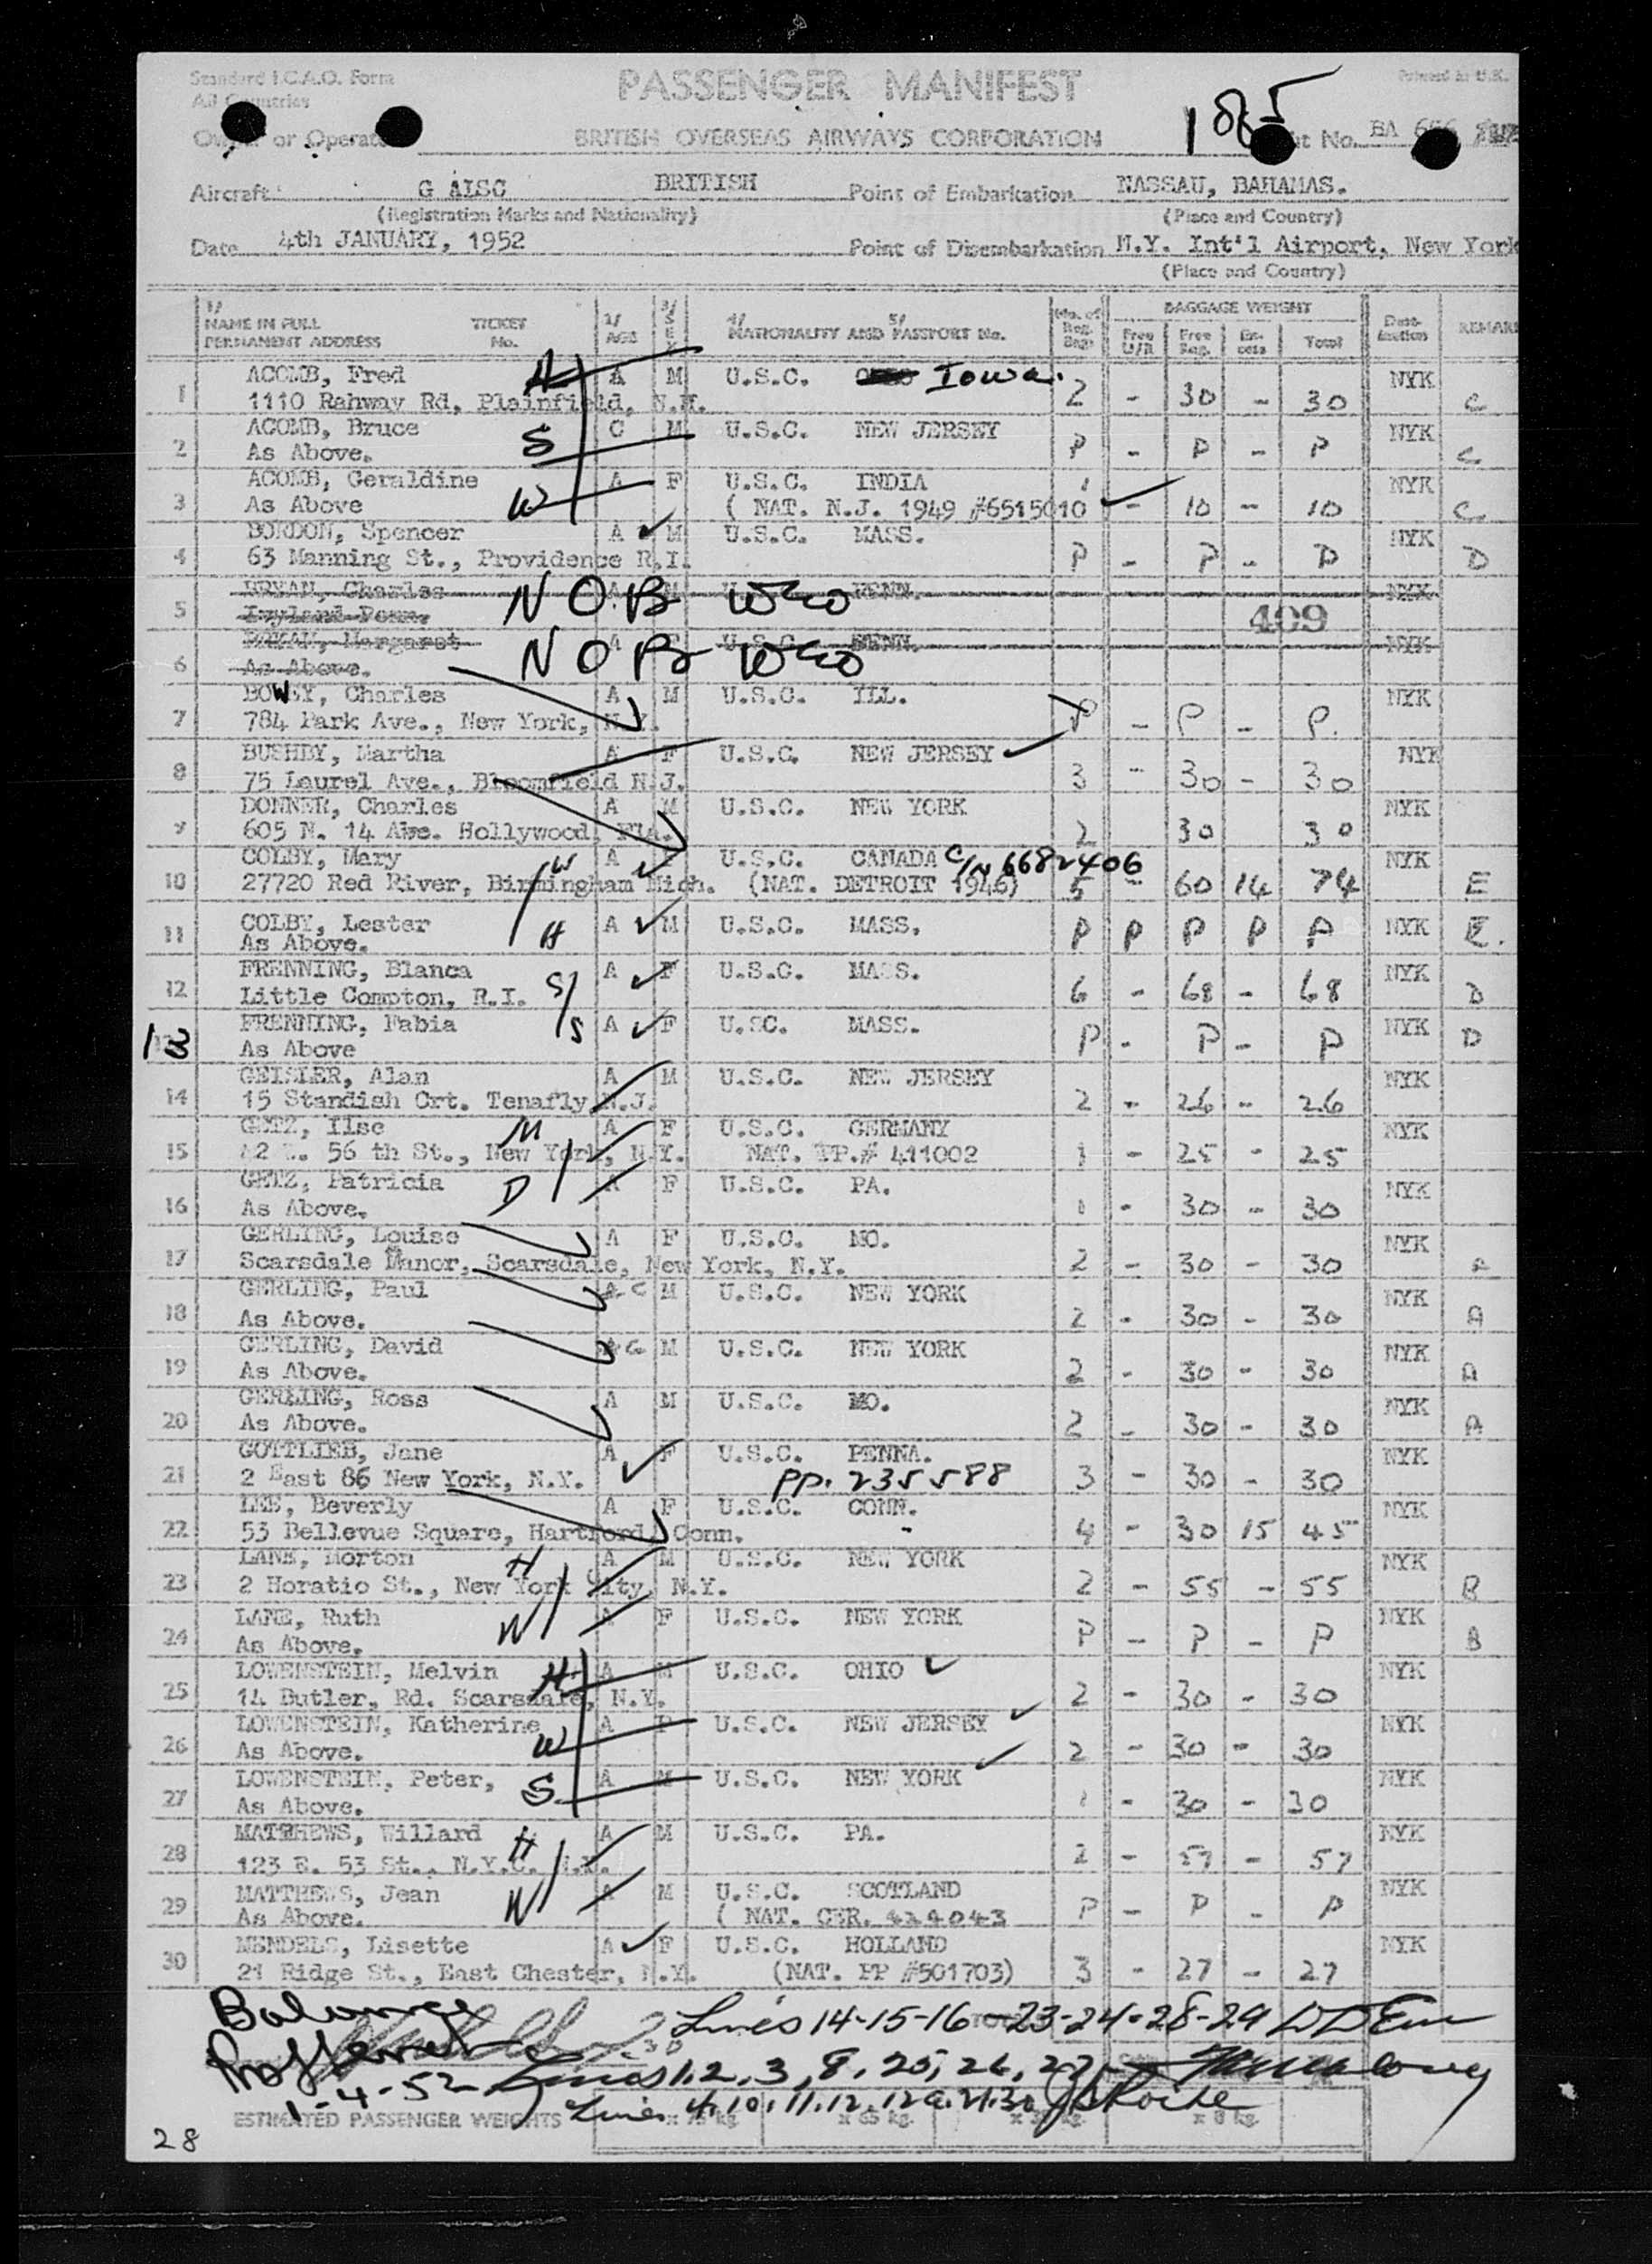 Standard I.C.A.O. Form
All Countries
PASSENGER MANIFEST
Printed in U.K.
185
Owner or Operator BRITISH OVERSEAS AIRWAYS CORPORATION No. BA
Aircraft G ALSC BRITISH Point of Embarkation NASSAU, BAHAMAS.
(Registration Marks and Nationality) (Place and Country)
Date 4th JANUARY, 1952 Point of Disembarkation N.Y. Int'l Airport, New York
(Place and Country)
1/ NAME IN FULL PERMANENT ADDRESS TICKET No. 2/ AGE 3/ SEX 4/ NATIONALITY AND 5/ PASSPORT No. No. of Reg. Bags BAGGAGE WEIGHT Free U/R Free Reg. Excess Total Destination REMARK
1 ACOMB, Fred H A M U.S.C. Iowa. 2 - 30 - 30 NYK C
1110 Rahway Rd, Plainfield, N.H.
2 ACOMB, Bruce S C M U.S.C. NEW JERSEY P - P - P NYK C
As Above.
3 ACOMB, Geraldine W A F U.S.C. INDIA 1 - 10 - 10 NYK C
As Above ( NAT. N.J. 1949 #6515010
4 BORDON, Spencer A M U.S.C. MASS. P - P - P NYK D
63 Manning St., Providence R.I.
5 Charles NOB A M PENN. NYK
409
6 Margaret NOB A U.S.C. PENN. NYK
As Above.
7 BOWEY, Charles A M U.S.C. ILL. P - P - P. NYK
784 Park Ave., New York, N.Y.
8 BUSHBY, Martha A F U.S.C. NEW JERSEY 3 - 30 - 30 NYK
75 Laurel Ave., Bloomfield N.J.
9 DONNER, Charles A M U.S.C. NEW YORK 2 30 30 NYK
605 N. 14 Ave. Hollywood, Fla.
10 COLBY, Mary W A U.S.C. CANADA C/N 6682406 5 - 60 14 74 NYK E
27720 Red River, Birmingham Mich. (NAT. DETROIT 1946)
11 COLBY, Lester H A M U.S.C. MASS. P P P P P NYK E.
As Above.
12 FRENNING, Blanca S A F U.S.C. MASS. 6 - 68 - 68 NYK D
Little Compton, R.I.
13 FRENNING, Fabia S A F U.SC. MASS. P - P - P NYK D
As Above
14 GEISLER, Alan A M U.S.C. NEW JERSEY 2 - 26 - 26 NYK
15 Standish Crt. Tenafly N.J.
15 GETZ, Ilse M A F U.S.C. GERMANY 1 - 25 - 25 NYK
42 E. 56 th St., New York, N.Y. NAT. PP.# 411002
16 GETZ, Patricia D A F U.S.C. PA. 1 - 30 - 30 NYK
As Above.
17 GERLING, Louise A F U.S.C. MO. 2 - 30 - 30 NYK A
Scarsdale Manor, Scarsdale, New York, N.Y.
18 GERLING, Paul C M U.S.C. NEW YORK 2 - 30 - 30 NYK A
As Above.
19 GERLING, David C M U.S.C. NEW YORK 2 - 30 - 30 NYK A
As Above.
20 GERLING, Ross A M U.S.C. MO. 2 - 30 - 30 NYK A
As Above.
21 GOTTLIEB, Jane A F U.S.C. PENNA. 3 - 30 - 30 NYK
2 East 86 New York, N.Y. PP. 235588
22 LEE, Beverly A F U.S.C. CONN. 4 - 30 15 45 NYK
53 Bellevue Square, Hartford, Conn.
23 LANE, Morton H A M U.S.C. NEW YORK 2 - 55 - 55 NYK B
2 Horatio St., New York City, N.Y.
24 LANE, Ruth W A F U.S.C. NEW YORK P - P - P NYK B
As Above.
25 LOWENSTEIN, Melvin H A M U.S.C. OHIO 2 - 30 - 30 NYK
14 Butler, Rd. Scarsdale, N.Y.
26 LOWENSTEIN, Katherine W A F U.S.C. NEW JERSEY 2 - 30 - 30 NYK
As Above.
27 LOWENSTEIN, Peter, S A M U.S.C. NEW YORK 1 - 30 - 30 NYK
As Above.
28 MATTHEWS, Willard H A M U.S.C. PA. 2 - 57 - 57 NYK
123 E. 53 St., N.Y.C. N.Y.
29 MATTHEWS, Jean W A M U.S.C. SCOTLAND P - P - P NYK
As Above. ( NAT. CER. 424043
30 MENDELS, Lisette A F U.S.C. HOLLAND 3 - 27 - 27 NYK
21 Ridge St., East Chester, N.Y. (NAT. PP #501703)
Balance
Lines 14-15-16 23-24-28-29
Lines 1, 2, 3, 8, 25, 26, 27
1-4-52
Lines 4, 10, 11, 12, 12a, 21, 30
ESTIMATED PASSENGER WEIGHTS x 65 kg. x 8 kg.
28